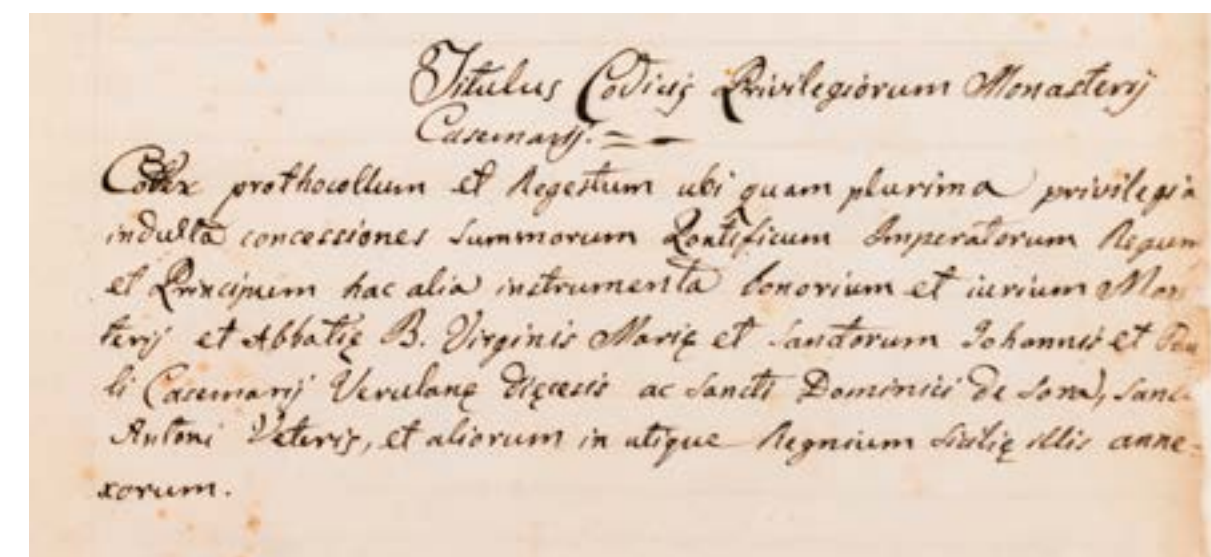 Titulus Codicis Privilegiorum Monasterij
Casemarij.
Codex prothocollum et Regestum ubi quam plurima privilegia
indulta concessiones summorum Pontificum Imperatorum Regum
et Principum hac alia instrumenta bonorium et iurium Mon
terij et Abbatię B. Virginis Marię et Sanctorum Johannis et Pau
li Casemarij Verulanę Dięcesis ac Sancti Dominici de Sona, Sanc
Antoni Veteris, et aliorum in utique Regnium Sicilię illis anne-
xorum.